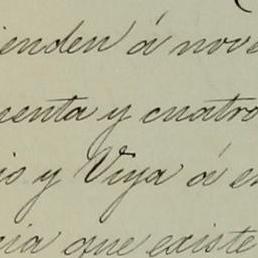 ienden á nove
uenta y cuatro
io y Viya á e
cia que existe